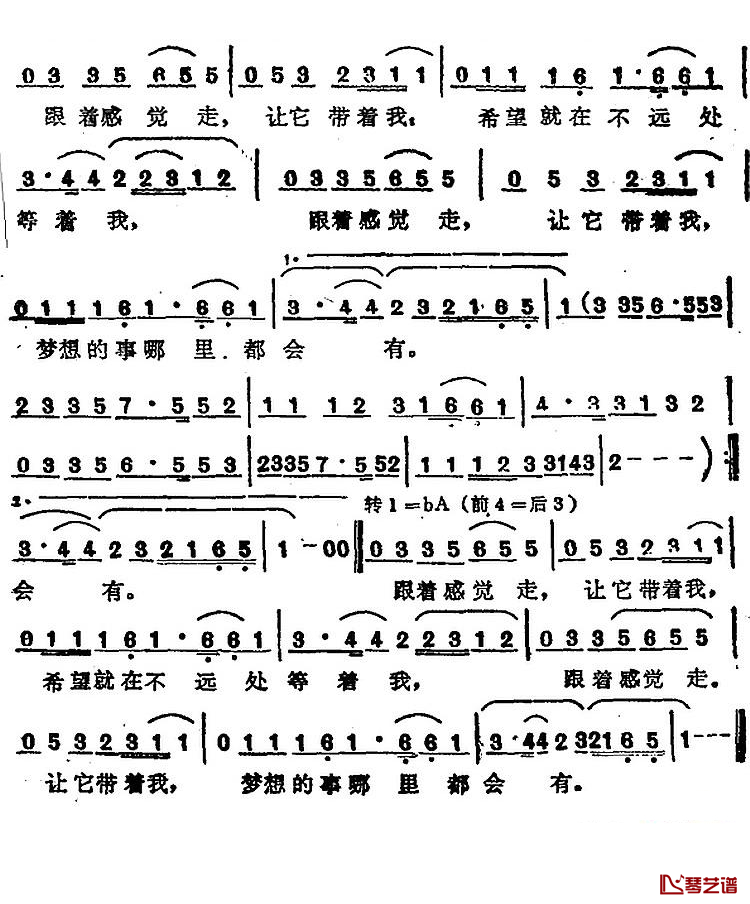 0 3 3 5 6 5 5 | 0 5 3 2 3 1 1 | 0 1 1 1 6 1 · 6 6 1
跟着感觉走，让它带着我：希望就在不远处
3 · 4 4 2 2 3 1 2 | 0 3 3 5 6 5 5 | 0 5 3 2 3 1 1
等着我，跟着感觉走，让它带着我，
1.
0 1 1 1 6 1 · 6 6 1 | 3 · 4 4 2 3 2 1 6 5 | 1 ( 3 3 5 6 · 5 5 3
梦想的事哪里都会有。
2 3 3 5 7 · 5 5 2 | 1 1 1 2 3 1 6 6 1 | 4 · 3 3 1 3 2
0 3 3 5 6 · 5 5 3 | 2 3 3 5 7 · 5 5 2 | 1 1 1 2 3 3 1 4 3 | 2 - - - ) :||
2. 转1=bA（前4=后3）
3 · 4 4 2 3 2 1 6 5 | 1 - 0 0 || 0 3 3 5 6 5 5 | 0 5 3 2 3 1 1
会有。跟着感觉走，让它带着我，
0 1 1 1 6 1 · 6 6 1 | 3 · 4 4 2 2 3 1 2 | 0 3 3 5 6 5 5
希望就在不远处等着我，跟着感觉走。
0 5 3 2 3 1 1 | 0 1 1 1 6 1 · 6 6 1 | 3 · 4 4 2 3 2 1 6 5 | 1 - - - ||
让它带着我，梦想的事哪里都会有。
琴艺谱